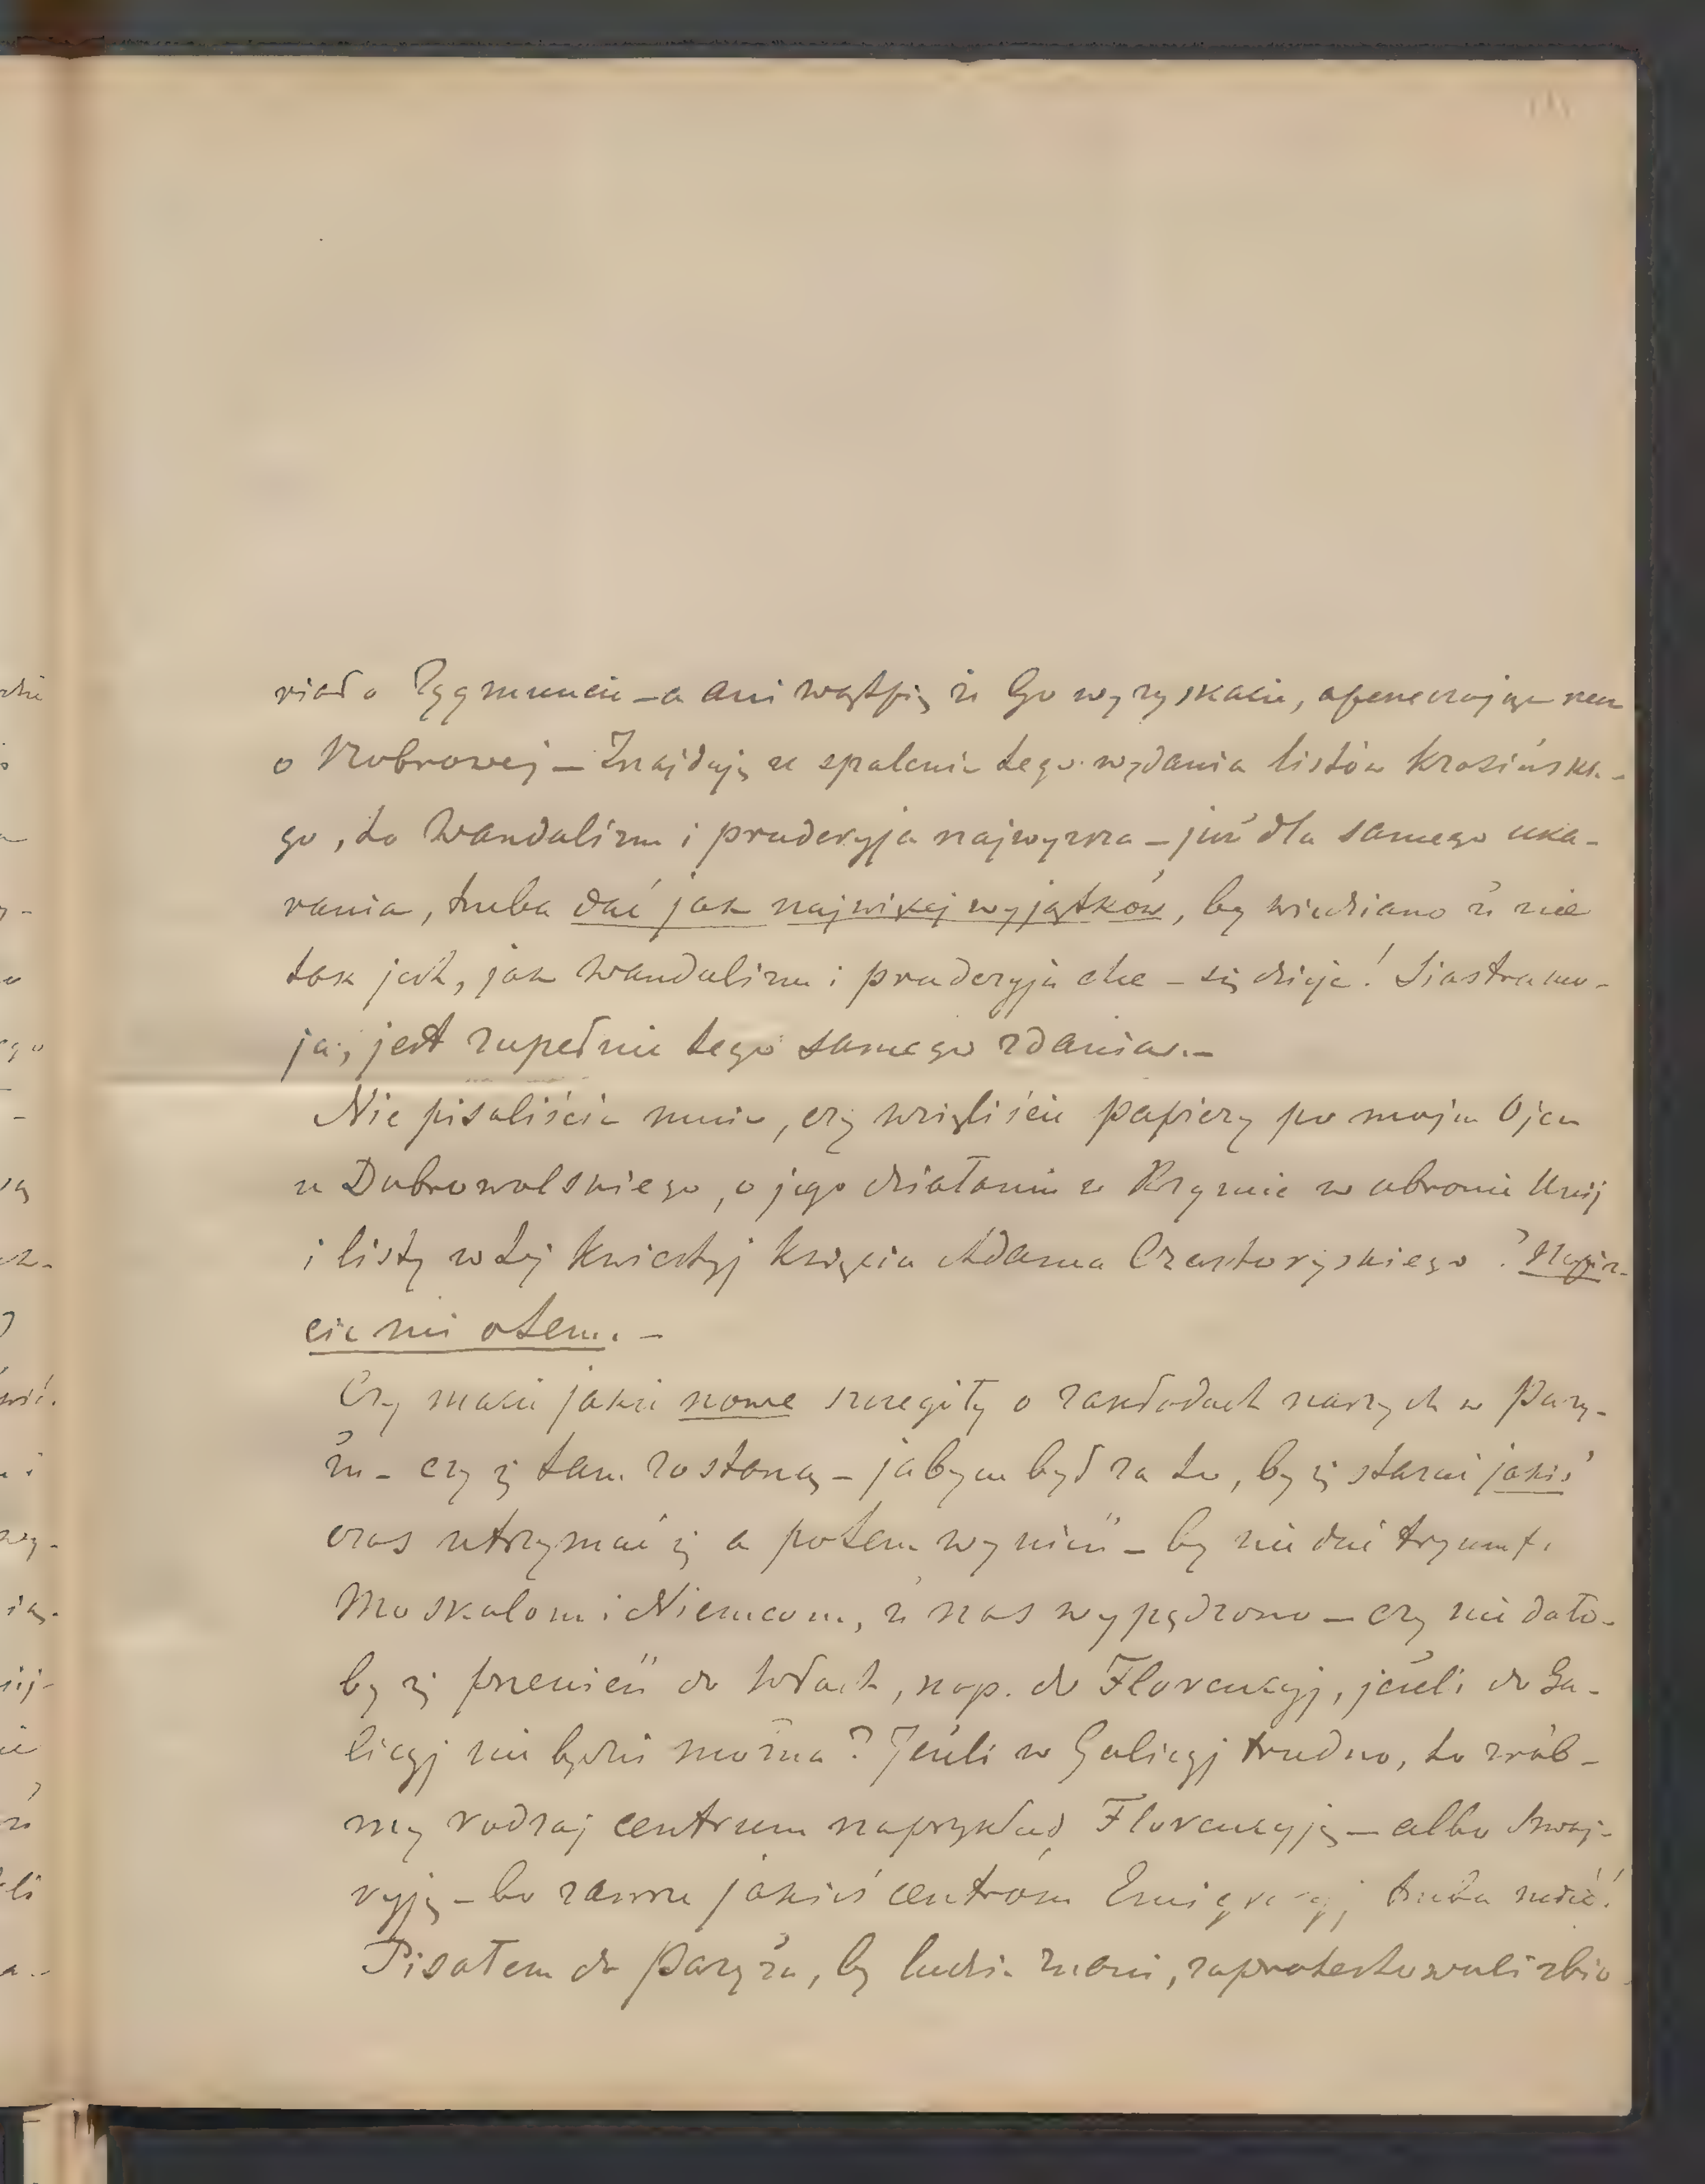 riał o Zygmuncie – a ani wątpię że Go wyzyskacie,
o Bobrowej – Znajduję że spalenie tego wydania listów Krasińskie-
go, to Wandalizm i pruderyja najwyższa – już dla samego uka-
rania, trzeba dać jak najwięcej wyjątków, by wiedziano że nie
tak jest, jak Wandalizm i pruderyja chce – się dzieje! Siostra mo-
ja, jest zupełnie tego samego zdania. –
Nie pisaliście mnie, czy wzięliście papiery po mojem Ojcu
u Dobrowolskiego, o jego działaniu w Rzymie w obronie Unij
i listy w tej kwiestyj księcia Adama Czartoryskiego? Napisz-
cie mi o tem. –
Czy macie jakie nowe szczegóły o zakładach naszych w Pary-
żu – czy się tam zostaną – jabym był za to, by się starać jakiś
czas utrzymać się a potem wynieść – by nie dać tryumfu
Moskalom i Niemcom, że nas wypędzono – czy nie dało-
by się przenieść do Włoch, nap. do Florencyj, jeżeli do Ga-
licyj nie będzie można? Jeżeli w Galicyj trudno, to zrób-
my rodzaj centrum naprzykład Florencyję – albo Szwaj-
caryję – bo zawsze jakieś centrum Emigracyj trzeba mieć!
Pisałem do Paryża, by ludzie znani, zaprotestowali zbio-